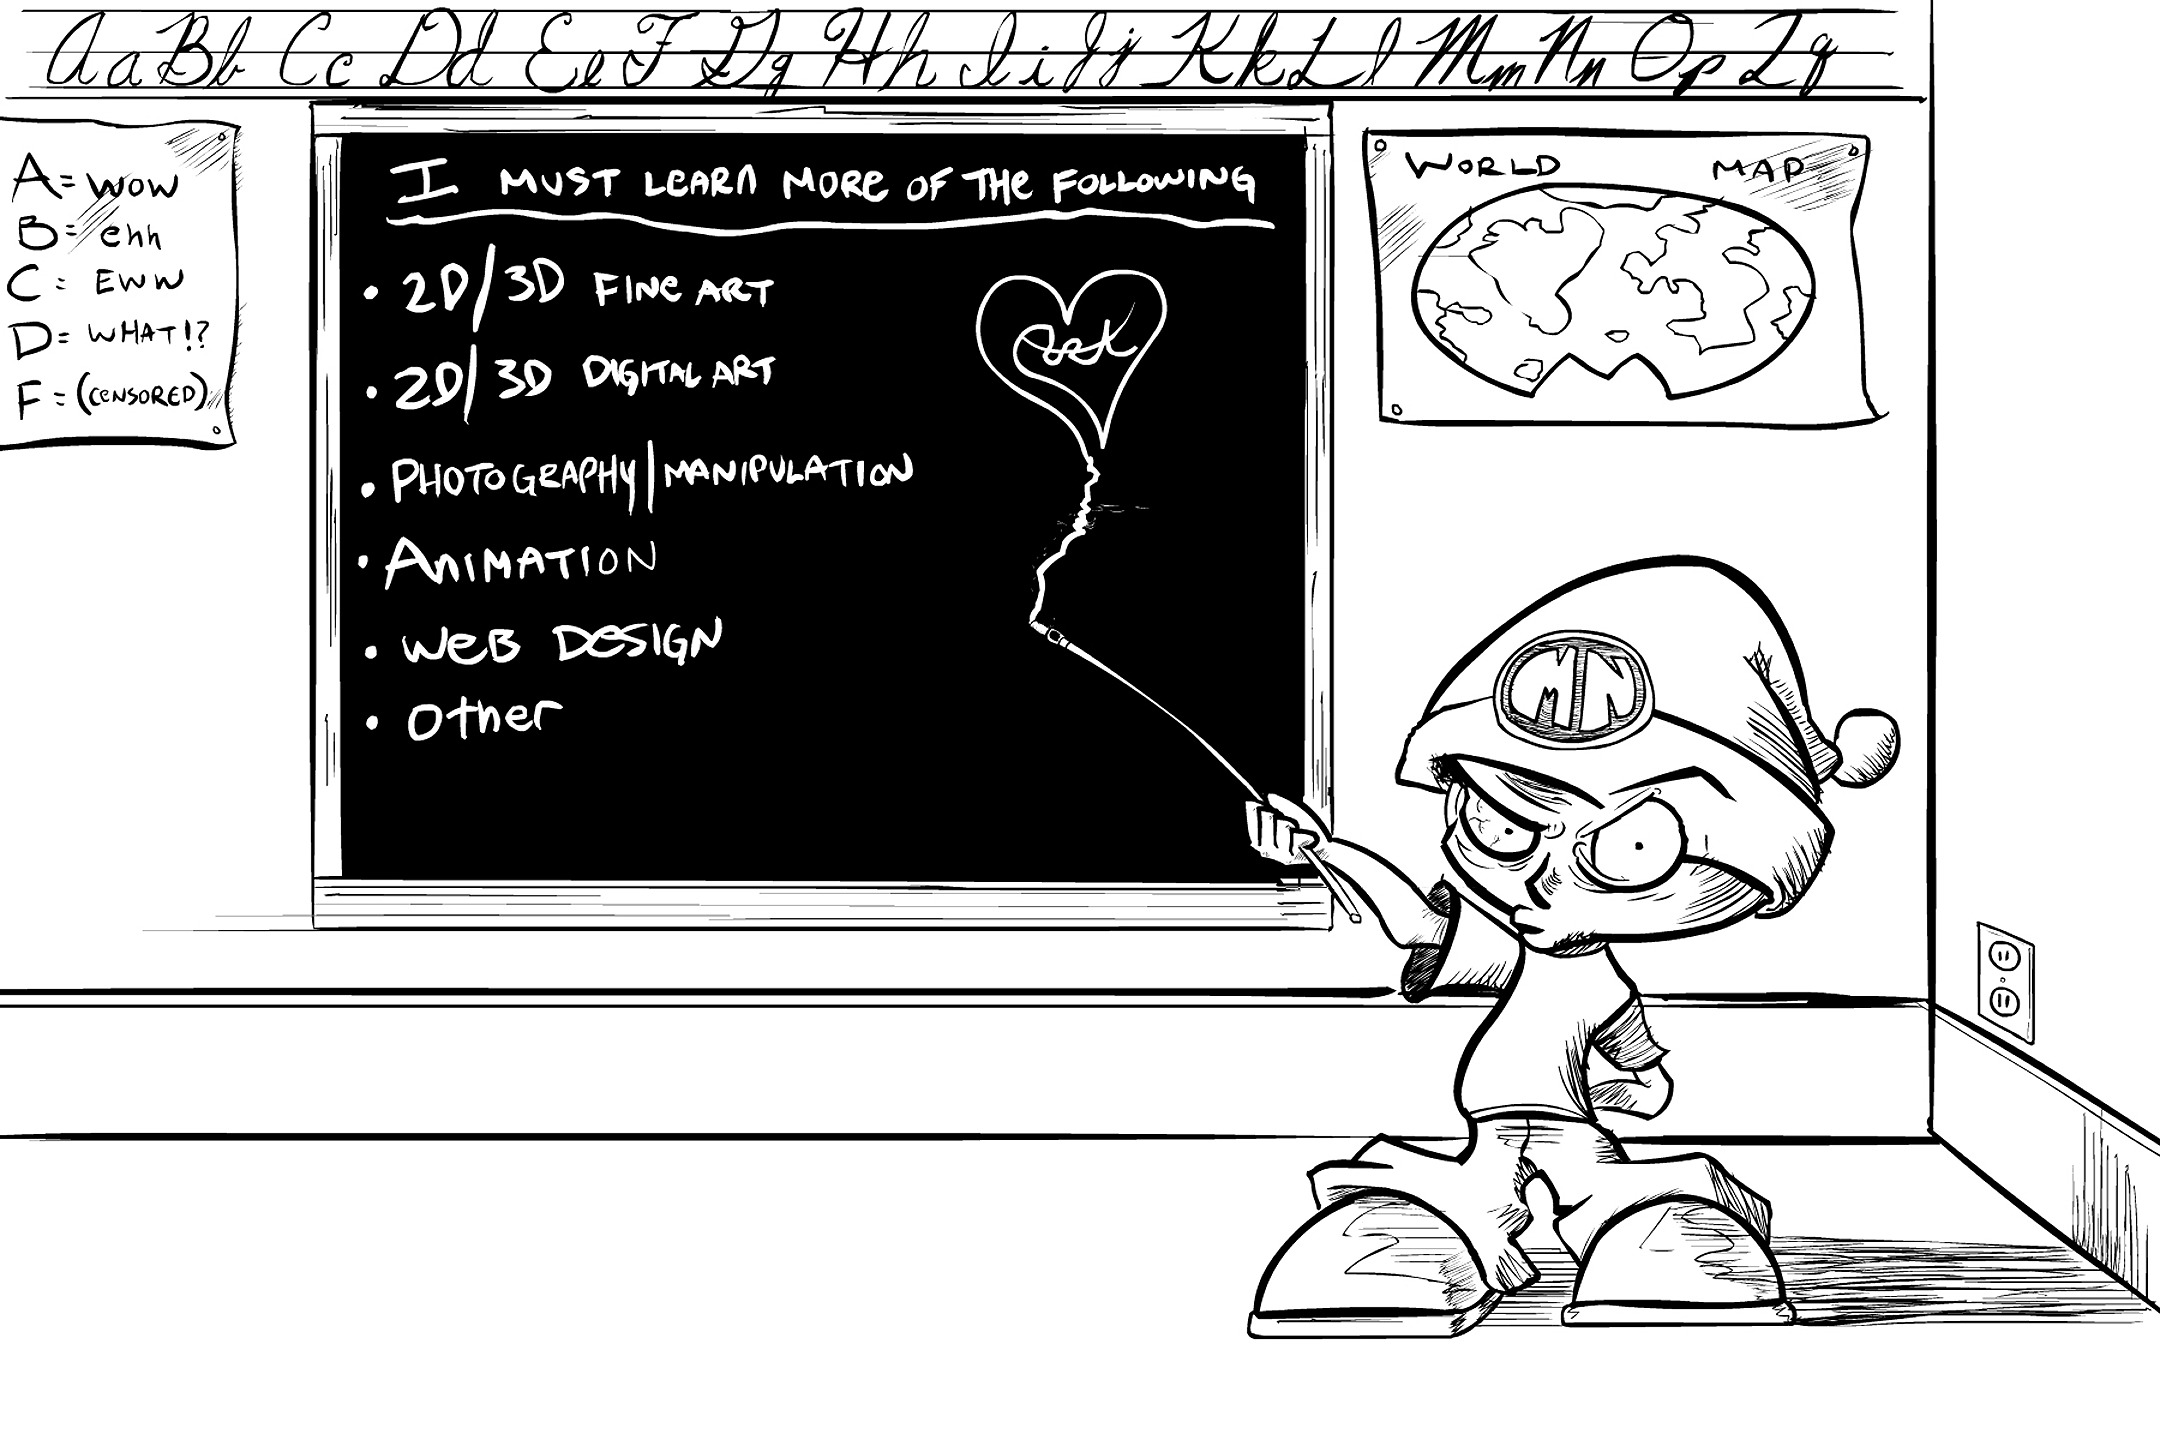 Aa Bb Cc Dd Ee F Gg Hh Ii Jj Kk Ll Mm Nn Op Qq
A = WOW
B = ehh
C = EWW
D = WHAT!?
F = (CENSORED)
I MUST LEARN MORE OF THE FOLLOWING
• 2D/3D FINE ART
• 2D/3D DIGITAL ART
• PHOTOGRAPHY/MANIPULATION
• ANIMATION
• WEB DESIGN
• Other
Art
WORLD MAP
MN